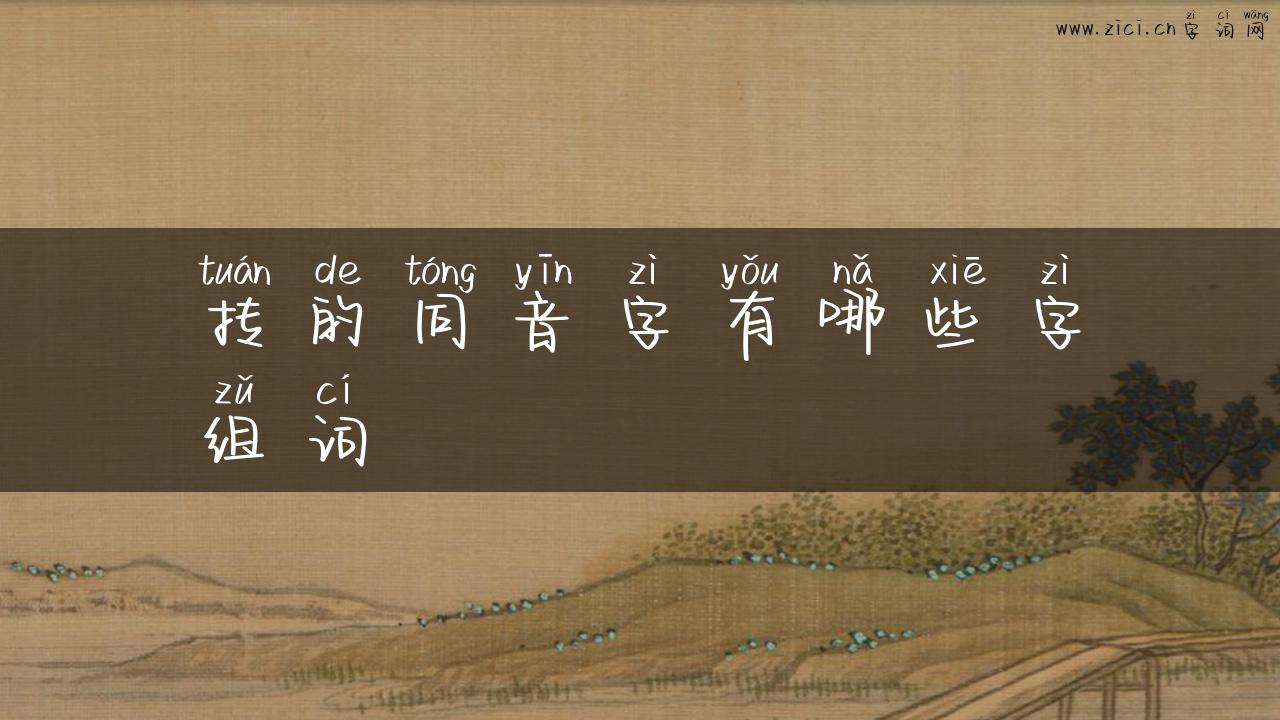 zì cí wǎng
www.zici.cn字词网
tuán de tóng yīn zì yǒu nǎ xiē zì
抟的同音字有哪些字
zǔ cí
组词